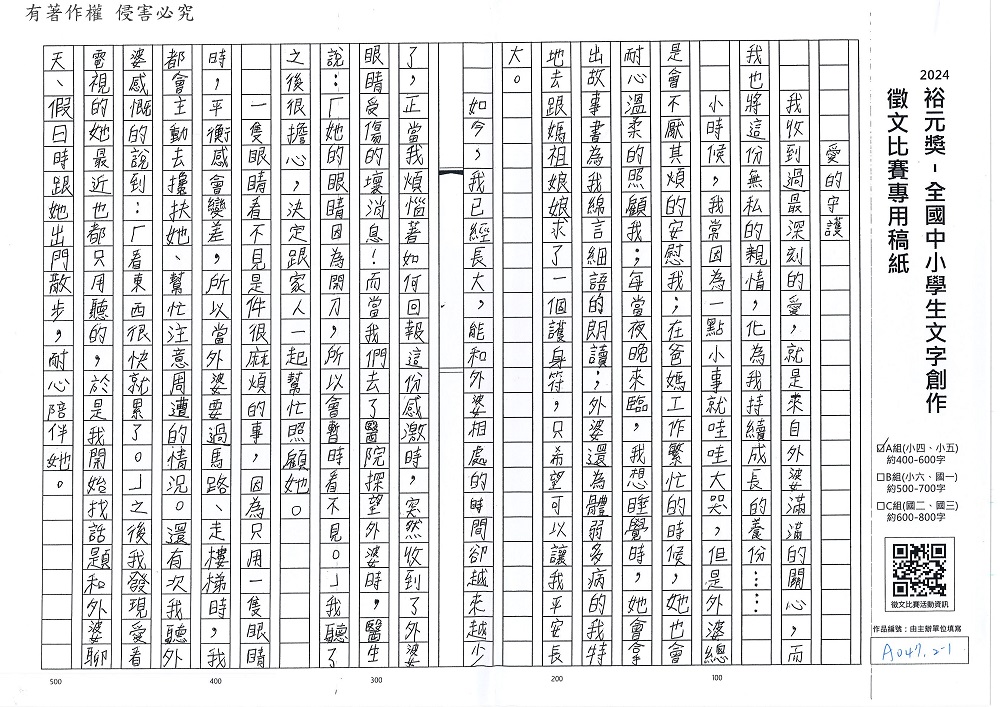 有著作權 侵害必究
2024
裕元獎-全國中小學生文字創作
徵文比賽專用稿紙
☑A組(小四、小五)
約400-600字
□B組(小六、國一)
約500-700字
□C組(國二、國三)
約600-800字
徵文比賽活動資訊
作品編號：由主辦單位填寫
A047.2-1
愛的守護
我收到過最深刻的愛，就是來自外婆滿滿的關心，而
我也將這份無私的親情，化為我持續成長的養份……
小時候，我常因一點小事就哇哇大哭，但是外婆總
是會不厭其煩的安慰我；在爸媽工作繁忙的時候，她也會
耐心溫柔的照顧我；每當夜晚來臨，我想睡覺時，她會拿
出故事書為我綿言細語的朗讀；外婆還為體弱多病的我特
地去跟媽祖娘娘求了一個護身符，只希望可以讓我平安長
大。
如今，我已經長大，能和外婆相處的時間卻越來越少
了，正當我煩惱著如何回報這份感激時，突然收到了外婆
眼睛受傷的壞消息！而當我們去了醫院探望外婆時，醫生
說：「她的眼睛因為開刀，所以會暫時看不見。」我聽了
之後很擔心，決定跟家人一起幫忙照顧她。
一隻眼睛看不見是件很麻煩的事，因為只用一隻眼睛
時，平衡感會變差，所以當外婆要過馬路、走樓梯時，我
都會主動去攙扶她、幫忙注意周遭的情況。還有次我聽外
婆感慨的說到：「看東西很快就累了。」之後我發現愛看
電視的她最近也都只用聽的，於是我開始找話題和外婆聊
天、假日時跟她出門散步，耐心陪伴她。
100
200
300
400
500